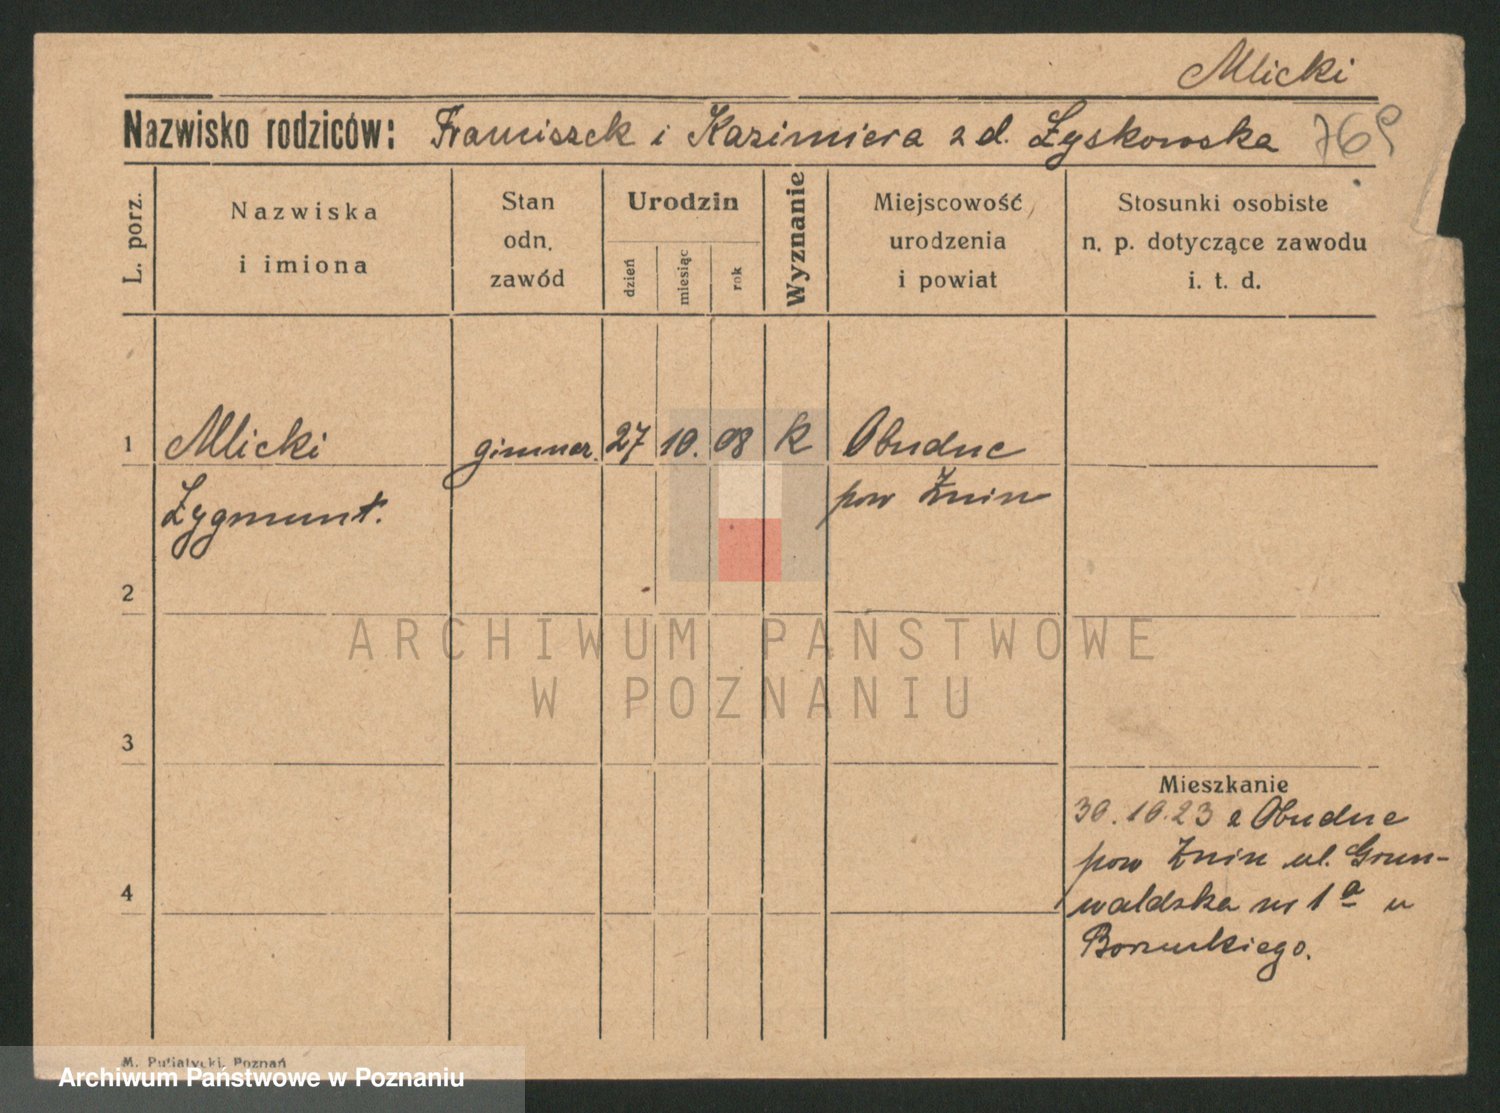 Mlicki
Nazwisko rodziców: Franciszek i Kazimiera z d. Łyskowska 769
L. porz.
Nazwiska
i imiona
Stan
odn.
zawód
Urodzin
dzień
miesiąc
rok
Wyznanie
Miejscowość
urodzenia
i powiat
Stosunki osobiste
n. p. dotyczące zawodu
i. t. d.
1 Mlicki gimnaz. 27 10. 08 k Obudno
Zygmunt. pow Żnin
2
ARCHIWUM PAŃSTWOWE
W POZNANIU
3
Mieszkanie
30.10.23 z Obudno
pow Żnin ul. Grun-
4
waldzka nr 1a u
M. Putiatycki, Poznań
Archiwum Państwowe w Poznaniu